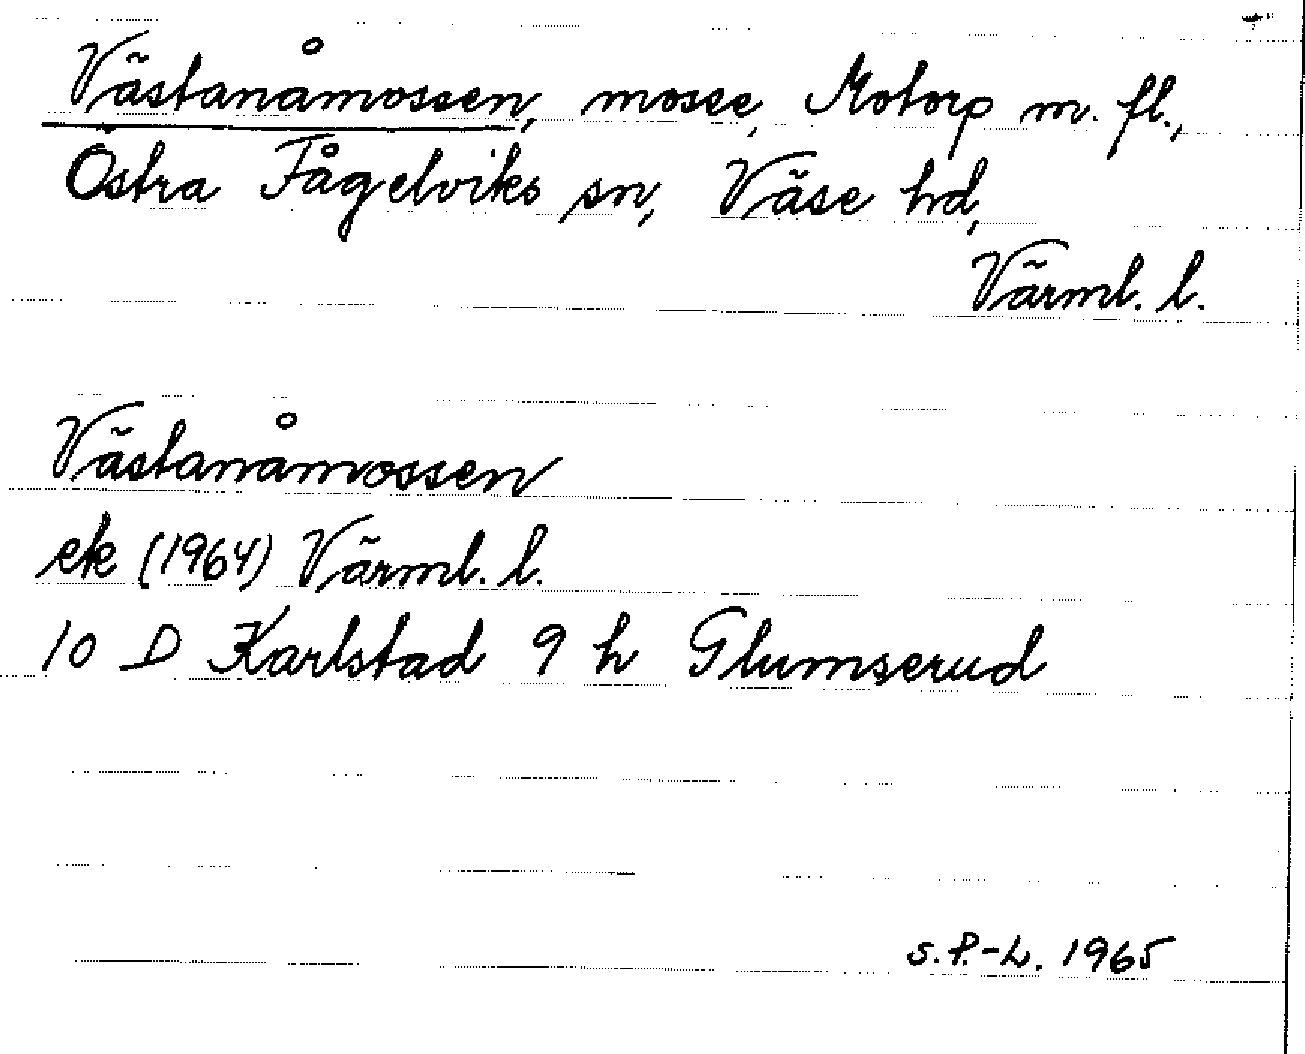 Västanåmossen, mosse, Motorp m. fl.,
Östra Fågelviks sn, Väse hd,
Värml. l.
Västanåmossen
ek (1964) Värml. l.
10 D Karlstad 9 h Glumserud
S.P.-L. 1965